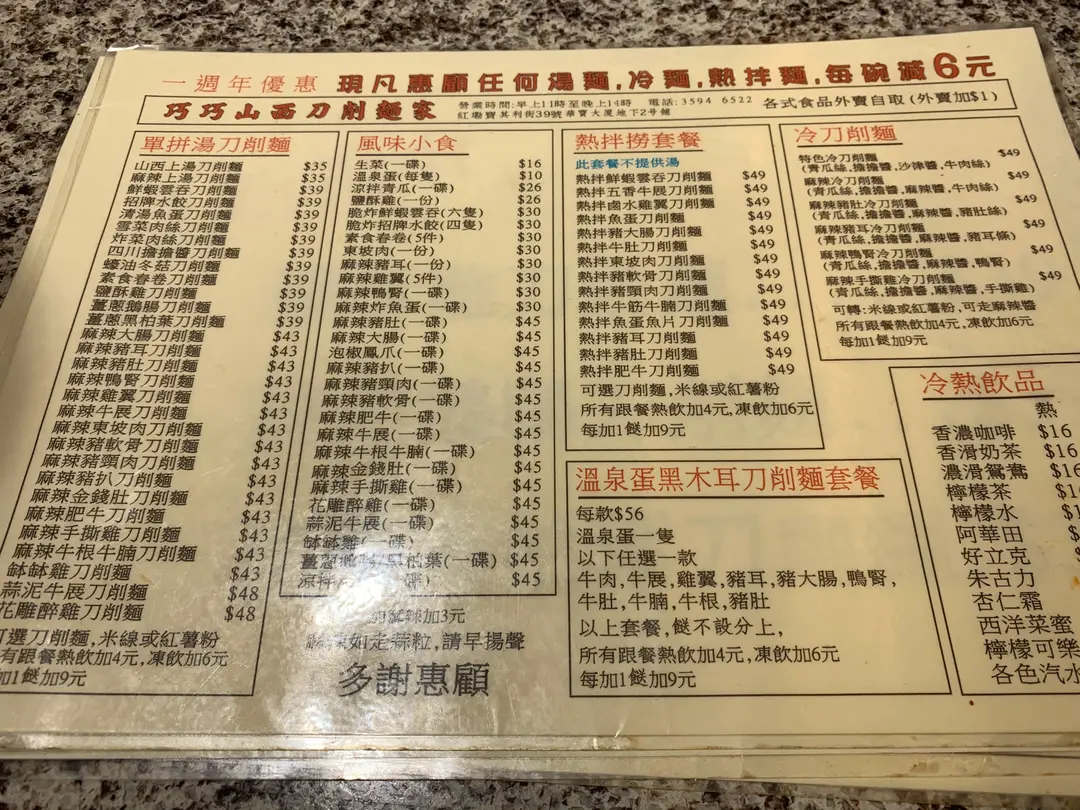 一週年優惠 現凡惠顧任何湯麵,冷麵,熱拌麵,每碗減6元
巧巧山西刀削麵家
營業時間:早上11時至晚上11時 電話:3594 6522
紅磡寶其利街39號華寶大厦地下2號舖
各式食品外賣自取(外賣加$1)
單拼湯刀削麵
山西上湯刀削麵 $35
麻辣上湯刀削麵 $35
鮮蝦雲吞刀削麵 $39
招牌水餃刀削麵 $39
清湯魚蛋刀削麵 $39
雪菜肉絲刀削麵 $39
炸菜肉絲刀削麵 $39
四川擔擔醬刀削麵 $39
蠔油冬菇刀削麵 $39
素食春卷刀削麵 $39
鹽酥雞刀削麵 $39
薑蔥鵝腸刀削麵 $39
薑蔥黑柏葉刀削麵 $39
麻辣大腸刀削麵 $43
麻辣豬耳刀削麵 $43
麻辣豬肚刀削麵 $43
麻辣鴨腎刀削麵 $43
麻辣雞翼刀削麵 $43
麻辣牛展刀削麵 $43
麻辣東坡肉刀削麵 $43
麻辣豬軟骨刀削麵 $43
麻辣豬頸肉刀削麵 $43
麻辣豬扒刀削麵 $43
麻辣金錢肚刀削麵 $43
麻辣肥牛刀削麵 $43
麻辣手撕雞刀削麵 $43
麻辣牛根牛腩刀削麵 $43
缽缽雞刀削麵 $43
蒜泥牛展刀削麵 $48
花雕醉雞刀削麵 $48
可選刀削麵,米線或紅薯粉
所有跟餐熱飲加4元,凍飲加6元
每加1餸加9元
風味小食
生菜(一碟) $16
溫泉蛋(每隻) $10
涼拌青瓜(一碟) $26
鹽酥雞(一份) $26
脆炸鮮蝦雲吞(六隻) $30
脆炸招牌水餃(四隻) $30
素食春卷(5件) $30
東坡肉(一份) $30
麻辣豬耳(一份) $30
麻辣雞翼(5件) $30
麻辣鴨腎(一碟) $30
麻辣炸魚蛋(一碟) $30
麻辣豬肚(一碟) $45
麻辣大腸(一碟) $45
泡椒鳳爪(一碟) $45
麻辣豬扒(一碟) $45
麻辣豬頸肉(一碟) $45
麻辣豬軟骨(一碟) $45
麻辣肥牛(一碟) $45
麻辣牛展(一碟) $45
麻辣牛根牛腩(一碟) $45
麻辣金錢肚(一碟) $45
麻辣手撕雞(一碟) $45
花雕醉雞(一碟) $45
蒜泥牛展(一碟) $45
缽缽雞(一碟) $45
薑蔥 柏葉(一碟) $45
涼拌 碟) $45
加麻辣加3元
麻辣如走蒜粒,請早揚聲
多謝惠顧
熱拌撈套餐
此套餐不提供湯
熱拌鮮蝦雲吞刀削麵 $49
熱拌五香牛展刀削麵 $49
熱拌鹵水雞翼刀削麵 $49
熱拌魚蛋刀削麵 $49
熱拌豬大腸刀削麵 $49
熱拌牛肚刀削麵 $49
熱拌東坡肉刀削麵 $49
熱拌豬軟骨刀削麵 $49
熱拌豬頸肉刀削麵 $49
熱拌牛筋牛腩刀削麵 $49
熱拌魚蛋魚片刀削麵 $49
熱拌豬耳刀削麵 $49
熱拌豬肚刀削麵 $49
熱拌肥牛刀削麵 $49
可選刀削麵,米線或紅薯粉
所有跟餐熱飲加4元,凍飲加6元
每加1餸加9元
溫泉蛋黑木耳刀削麵套餐
每款$56
溫泉蛋一隻
以下任選一款
牛肉,牛展,雞翼,豬耳,豬大腸,鴨腎,
牛肚,牛腩,牛根,豬肚
以上套餐,餸不設分上,
所有跟餐熱飲加4元,凍飲加6元
每加1餸加9元
冷刀削麵
特色冷刀削麵 $49
(青瓜絲,擔擔醬,沙律醬,牛肉絲)
麻辣冷刀削麵 $49
(青瓜絲,擔擔醬,麻辣醬,牛肉絲)
麻辣豬肚冷刀削麵 $49
(青瓜絲,擔擔醬,麻辣醬,豬肚絲)
麻辣豬耳冷刀削麵 $49
(青瓜絲,擔擔醬,麻辣醬,豬耳條)
麻辣鴨腎冷刀削麵 $49
(青瓜絲,擔擔醬,麻辣醬,鴨腎)
麻辣手撕雞冷刀削麵 $49
(青瓜絲,擔擔醬,麻辣醬,手撕雞)
可轉:米線或紅薯粉,可走麻辣醬
所有跟餐熱飲加4元,凍飲加6元
每加1餸加9元
冷熱飲品
熱
香濃咖啡 $16
香滑奶茶 $16
濃滑鴛鴦 $16
檸檬茶
檸檬水
阿華田
好立克
朱古力
杏仁霜
西洋菜蜜
檸檬可樂
各色汽水